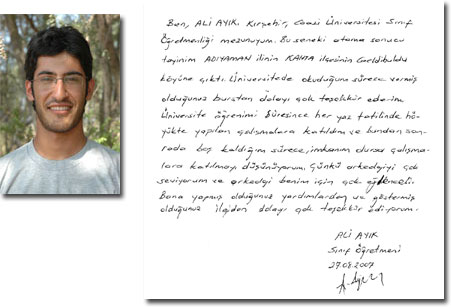 Ben, ALİ AYIK. Kırşehir, Gazi Üniversitesi Sınıf
Öğretmenliği mezunuyum. Bu seneki atama sonucu
tayinim ADIYAMAN ilinin KAHTA ilçesinin Geldibuldu
köyüne çıktı. Üniversitede okuduğum sürece vermiş
olduğunuz burstan dolayı çok teşekkür ederim.
Üniversite öğrenimi süresince her yaz tatilinde hö-
yükte yapılan çalışmalara katıldım ve bundan son-
rada boş kaldığım sürece, imkanım dursa çalışma-
lara katılmayı düşünüyorum. Çünkü arkeolojiyi çok
seviyorum ve arkeoloji benim için çok eğlenceli.
Bana yapmış olduğunuz yardımlardan ve göstermiş
olduğunuz ilgiden dolayı çok teşekkür ediyorum.
ALİ AYIK
Sınıf Öğretmeni
27.08.2007